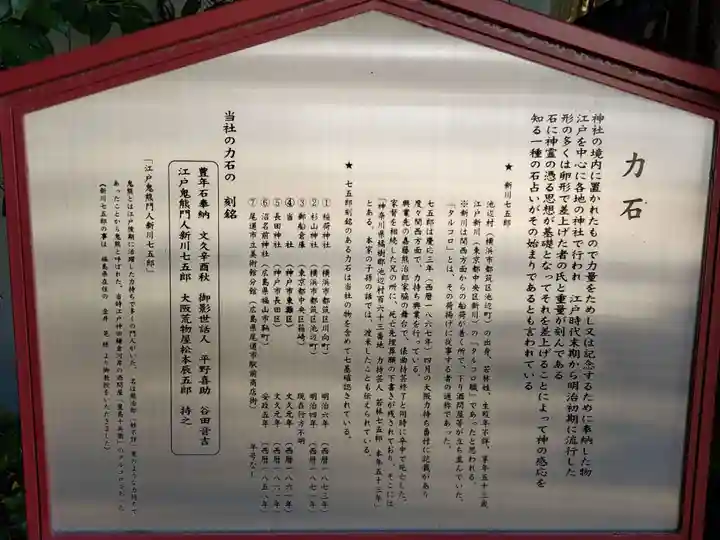 力石
神社の境内に置かれたもので力量をためし又は記念するために奉納した物
江戸を中心に各地の神社で行われ 江戸時代末期から明治初期に流行した
形の多くは卵形で差上げた者の氏と重量が刻んである
石に神霊の憑る思想が基礎となってそれを差上げることによって神の感応を
知る一種の石占いがその始まりであるとも言われている
★ 新川七五郎
池辺村(横浜市都筑区池辺町)の出身。若林姓、生歿年不詳、享年五十三歳
江戸新川(東京都中央区新川)の「タルコロ職」であったと思われる。
※新川は関西方面からの船荷が着く所で、下り酒問屋等が立ち並んでいた。
「タルコロ」とは、その荷揚げに従事する者の通称であった。
七五郎は慶応三年(西暦一八六七年)四月の大阪力持ち番付に記載があり
度々関西方面で、力持ち興行を行っている。
興業先の嘉藤熊治郎家脇の舞台で、俵曲持芸終了と同時に卒中で死亡した。
家督を相続した兄の所に、死亡先埋葬願の下書きが残されており、そこには
「神奈川県橘樹郡池辺村百六十三番地 力持芸人 若林七五郎 本年五十三年」
とある。本家の子孫の話では、渡米したことも伝えられている。
★ 七五郎刻銘のある力石は当社の物を含めて七基確認されている。
① 稲荷神社 (横浜市都筑区川向町) 明治六年 (西暦一八七三)
② 杉山神社 (横浜市都筑区池辺町) 明治四年 (西暦一八七一)
③ 御船倉庫 (東京都中央区箱崎) 現在行方不明
④ 当社 (神戸市東灘区) 文久元年 (西暦一八六一)
⑤ 長田神社 (神戸市長田区) 文久元年 (西暦一八六一)
⑥ 沼名前神社 (広島県福山市鞆町) 安政五年 (西暦一八五八)
⑦ 尾道市立美術館分館 (広島県尾道市駅前商店街) 年号なし
当社の力石の 刻銘
豊年石奉納 文久辛酉秋 御影世話人 平野喜助 谷田音吉
江戸鬼熊門人新川七五郎 大阪荒物屋松本辰五郎 持之
「江戸鬼熊門人新川七五郎」
鬼熊とは江戸後期に活躍した力持ちで多くの門人がいた。名は熊治郎
あったことから鬼熊と呼ばれた。当時江戸神田鎌倉河岸の酒問屋「豊島十兵衛」のタルコロであった
(新川七五郎の事は 福島県在住の 金井 晃 様より御教授をいただきました)